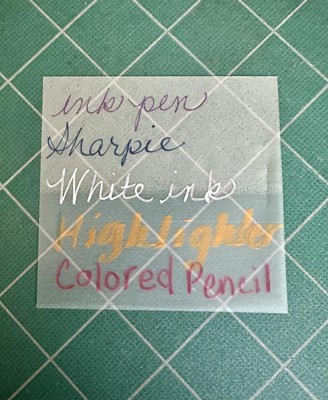 ink pen
Sharpie
White ink
Highlighter
Colored Pencil